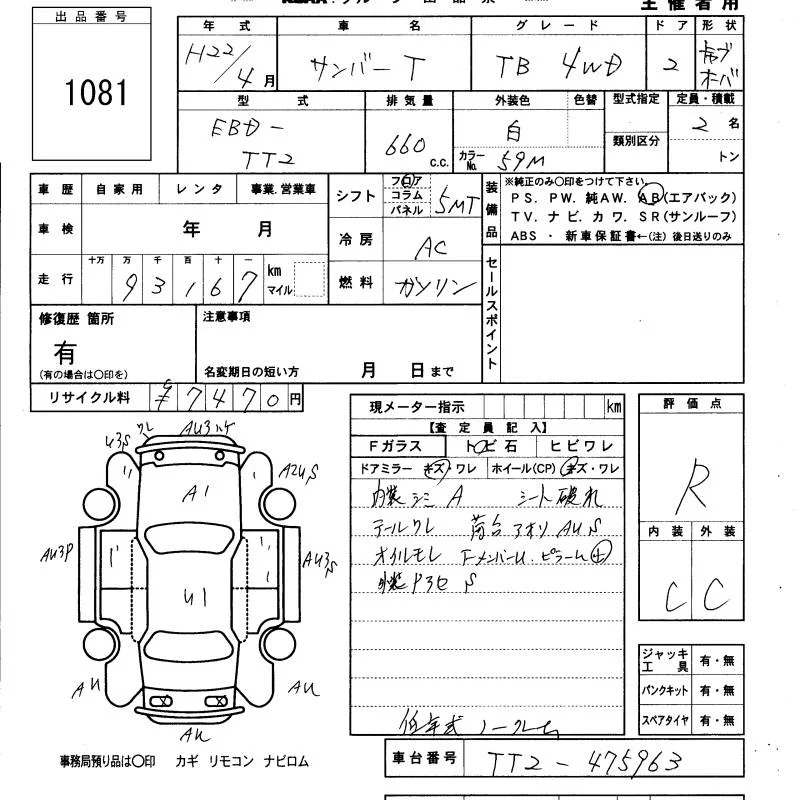 主催者用
出品番号
1081
年式 車名 グレード ドア 形状
H22/4月 サンバーT TB 4WD 2
型式 排気量 外装色 色替 型式指定 定員・積載
EBD-TT2 660 c.c. 白 カラーNo. 59M 類別区分 2名 トン
車歴 自家用 レンタ 事業.営業車
車検 年 月
走行 十万 万 千 百 十 一 km マイル
93167
シフト フロア コラム パネル 5MT
冷房 AC
燃料 ガソリン
装備品
※純正のみ○印をつけて下さい。
PS. PW. 純AW. AB(エアバック)
TV. ナビ. カワ. SR(サンルーフ)
ABS ・ 新車保証書←(注) 後日送りのみ
セールスポイント
修復歴 箇所
有
(有の場合は○印を)
注意事項
名変期日の短い方 月 日まで
リサイクル料 ¥7470円
現メーター指示 km
【査定員記入】
Fガラス トビ石 ヒビワレ
ドアミラー キズ・ワレ ホイール(CP) キズ・ワレ
内装シミ A シート破れ
テールワレ 荷台アオリ AUS
オイルモレ
低年式 ノークレ
評価点
R
内装 外装
C C
ジャッキ工具 有・無
パンクキット 有・無
スペアタイヤ 有・無
U3S ワレ AU3
A1 A2US
AU3P AU3S
U1
AU AU
AU
事務局預り品は○印 カギ リモコン ナビロム
車台番号 TT2-475963